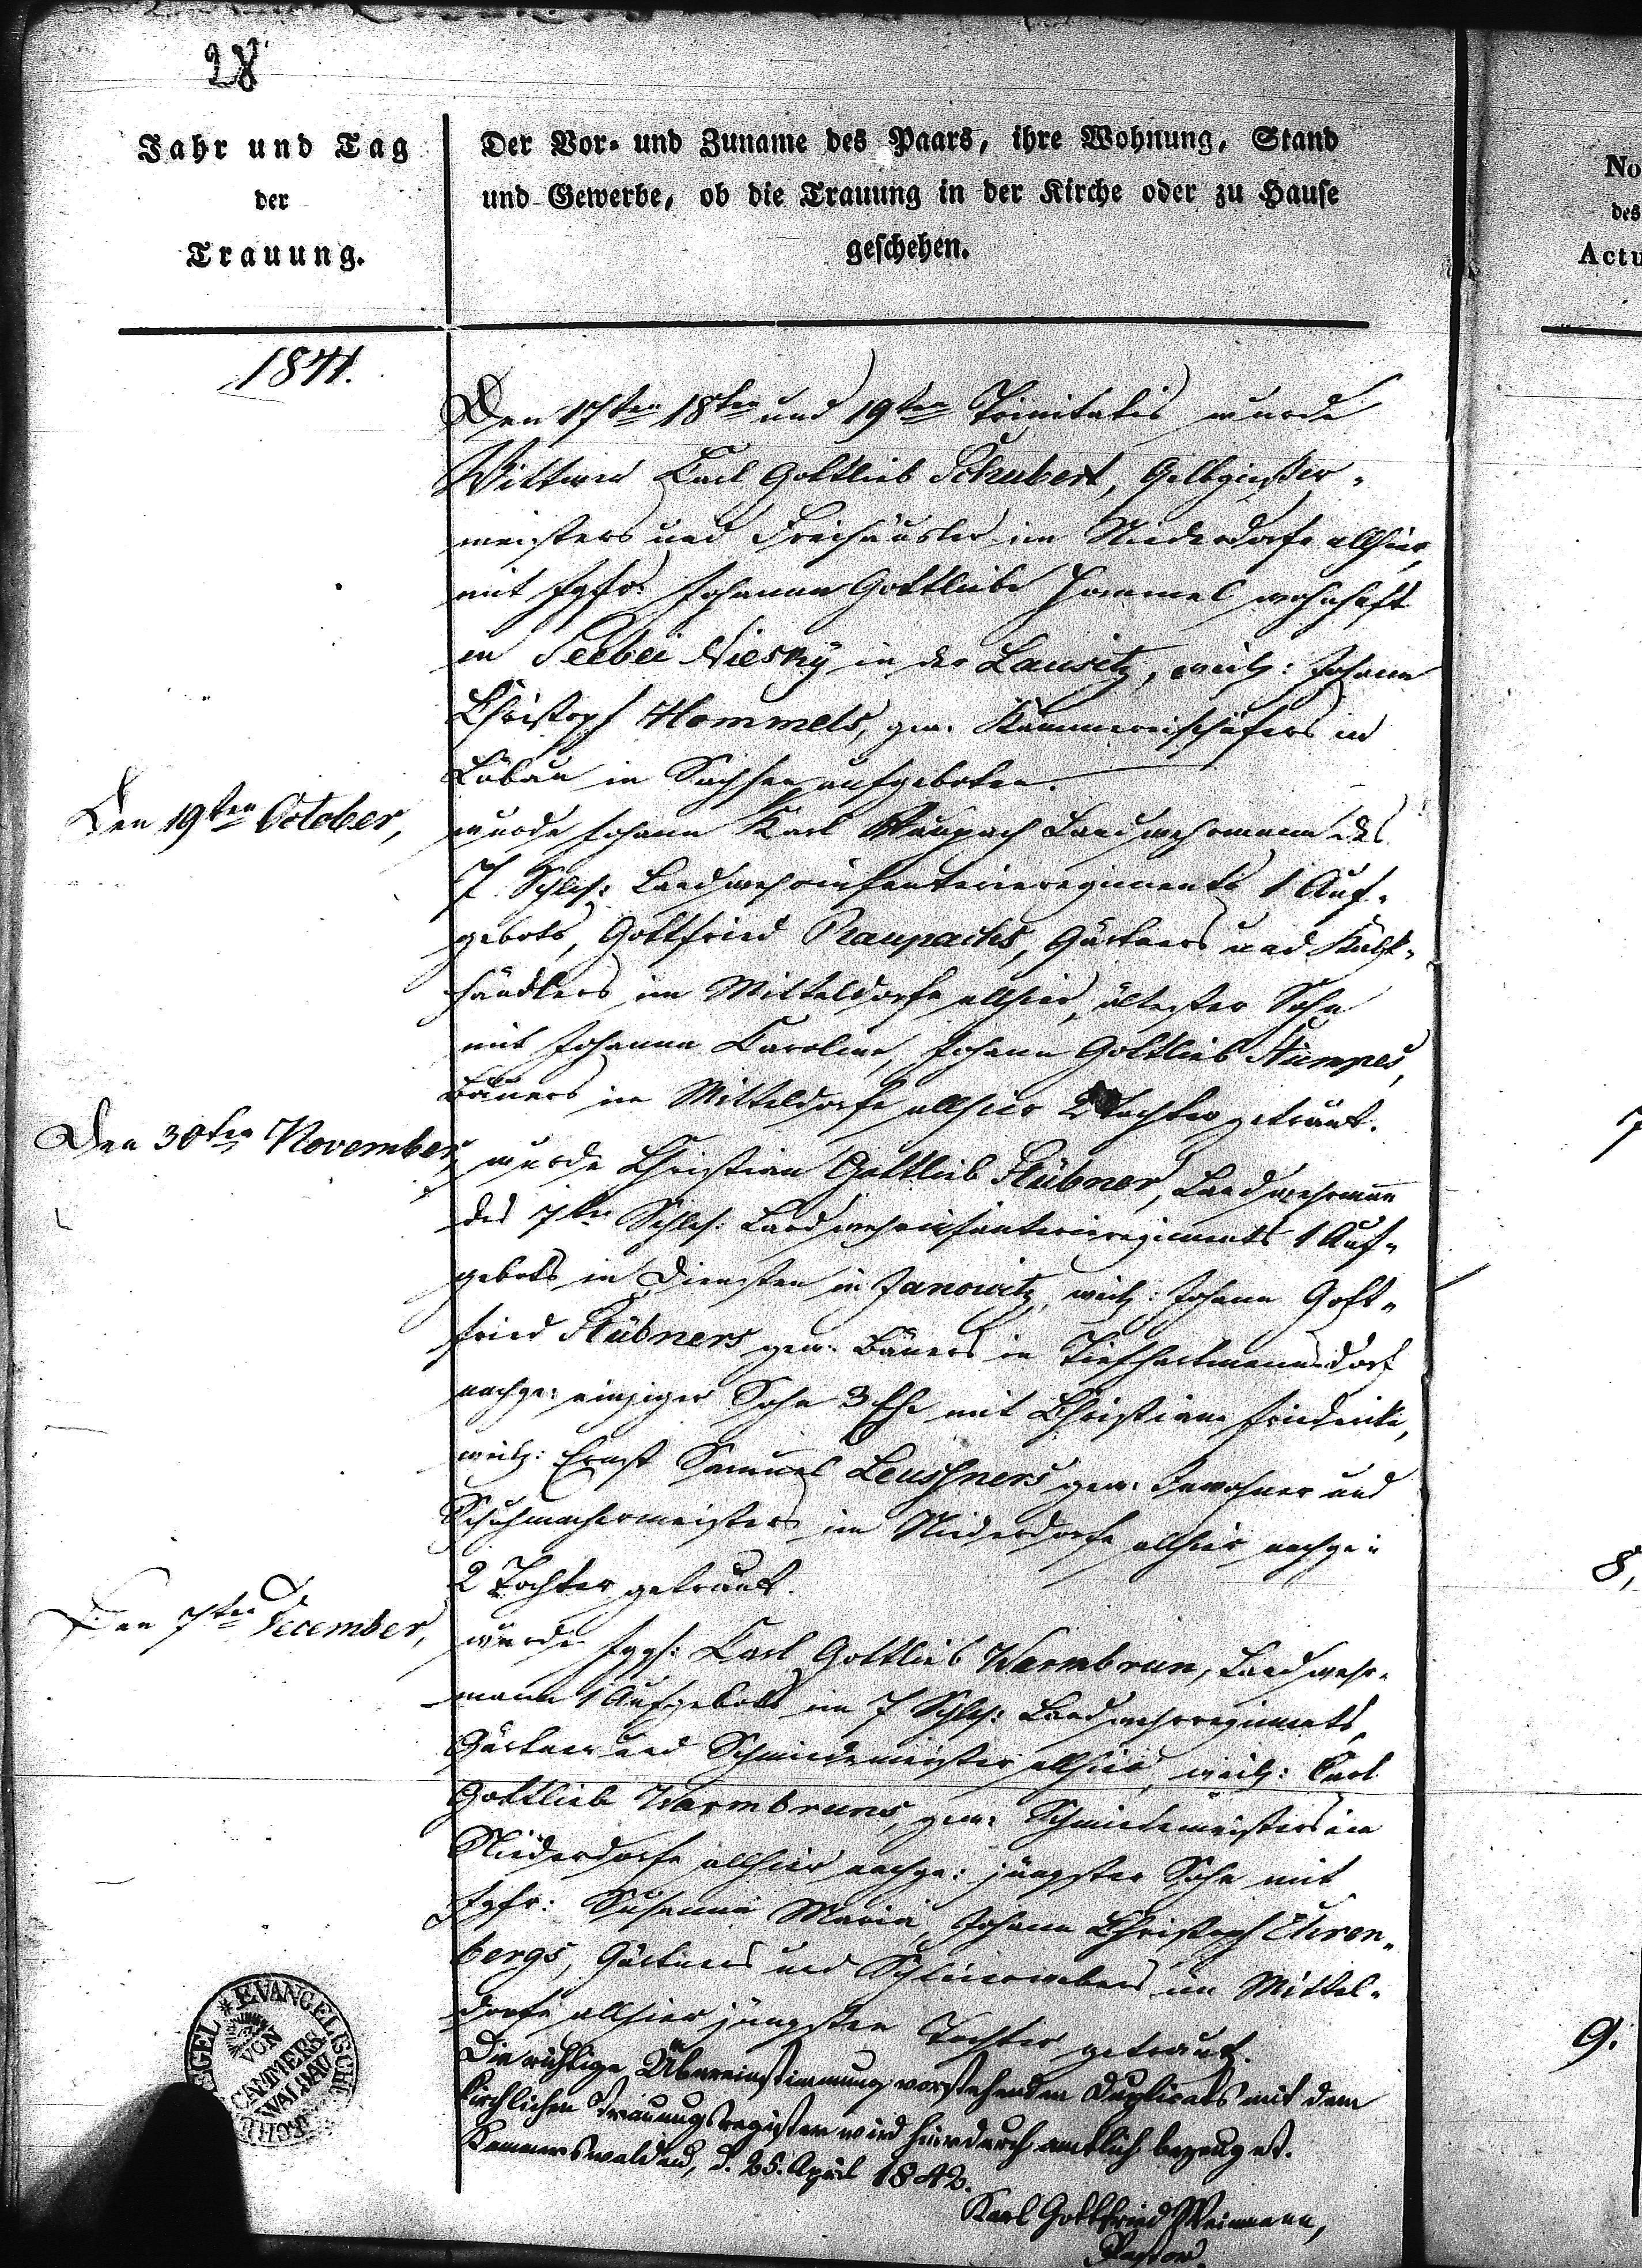 28
Jahr und Tag
der
Trauung.
Der Vor- und Zuname des Paars, ihre Wohnung, Stand
und Gewerbe, ob die Trauung in der Kirche oder zu Hause
geschehen.
No
des
Actu
1841.
Den 17ten 18ten und 19ten Trinitatis wurde
Wittwer Carl Gottlieb Schubert, Gelbgießer-
meisters und Freihäusler im Niederdorfe allhier,
mit Jgfr. Johanne Gottliebe Hommel wohnhaft
in See bei Niesky in der Lausitz, weil: Johann
Christoph Hommels, gew. Kämmereischäfers in
Löbau in Sachsen aufgeboten.
Den 19ten October,
wurde Johann Karl Raupach Landwehrmann des
7 Schles: Landwehrinfanterieregiments 1 Auf-
gebots, Gottfried Raupachs, Gärtners und
händlers im Mitteldorfe allhier, ältester Sohn
mit Johanne Caroline, Johann Gottlieb Stumpes,
Bauers im Mitteldorfe allhier 2 Tochter getraut.
Den 30ten November,
wurde Christian Gottlieb Hübner, Landwehrmann
des 7ten Schles: Landwehrinfanterieregiments 1 Auf-
gebots in Diensten in Janowitz, weil: Johann Gott-
fried Hübners gew. Bauers in Tiefhartmannsdorf
nachge: einziger Sohn 3 Ehe mit Christiane Friederike,
weil: Ernst Samuel Leuschners gew. Inwohner und
Schuhmachermeisters im Niederdorfe allhier nachge:
2 Tochter getraut.
Den 7ten December,
wurde Jggs: Carl Gottlieb Warmbrun, Landwehr-
mann 1 Aufgebots im 7 Schles: Landwehrregiments,
Gärtner und Schmiedemeister allhier, weil: Carl
Gottlieb Warmbruns, gew: Schmiedemeisters im
Niederdorfe allhier nachge: jüngster Sohn mit
Jgfr: Susanne Marie, Johann Christoph Ehren-
bergs, Gärtners und Schleierwebers im Mittel-
dorfe allhier jüngsten Tochter getraut.
Die richtige Übereinstimmung vorstehenden Duplicats mit dem
kirchlichen Trauungsregister wird hierdurch amtlich bezeuget.
Kammerswaldau, d. 25. April 1842.
Karl Gottfried Weinmann,
Pastor.
EVANGELISCHE
VON
CAMMERS
WALDAU
7
8,
9.